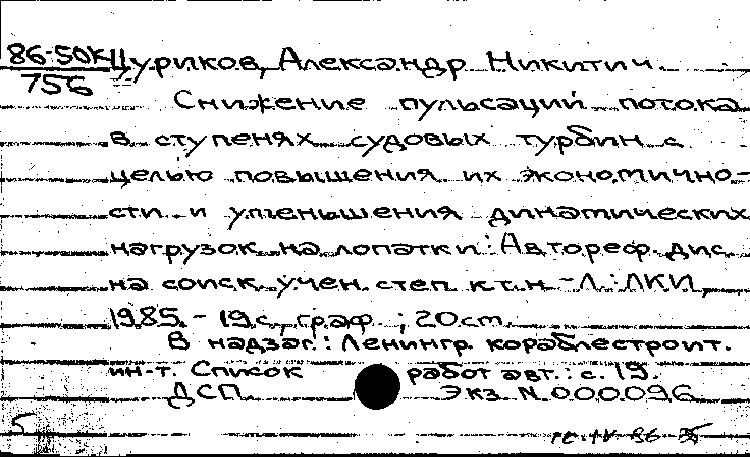 86-50К Цуриков, Александр Никитич.
756
Снижение пульсаций потока
в ступенях судовых турбин с
целью повышения их экономично-
сти и уменьшения динамических
нагрузок на лопатки: Автореф. дис.
на соиск. учен. степ. к.т.н. - Л.: ЛКИ,
1985. - 19 с., граф.; 20 см.
В надзаг.: Ленингр. кораблестроит.
ин-т. Список работ авт.: с. 19.
ДСП Экз. N 000096
5